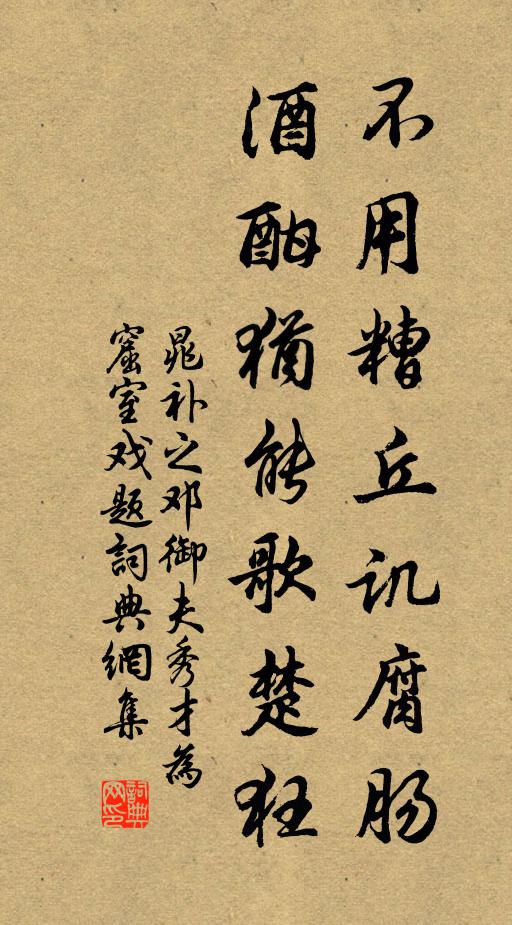 不用糟丘讥腐肠
酒酣犹能歌楚狂
晁补之邓御夫秀才為
窟室戏题詞典網集
詞典网印